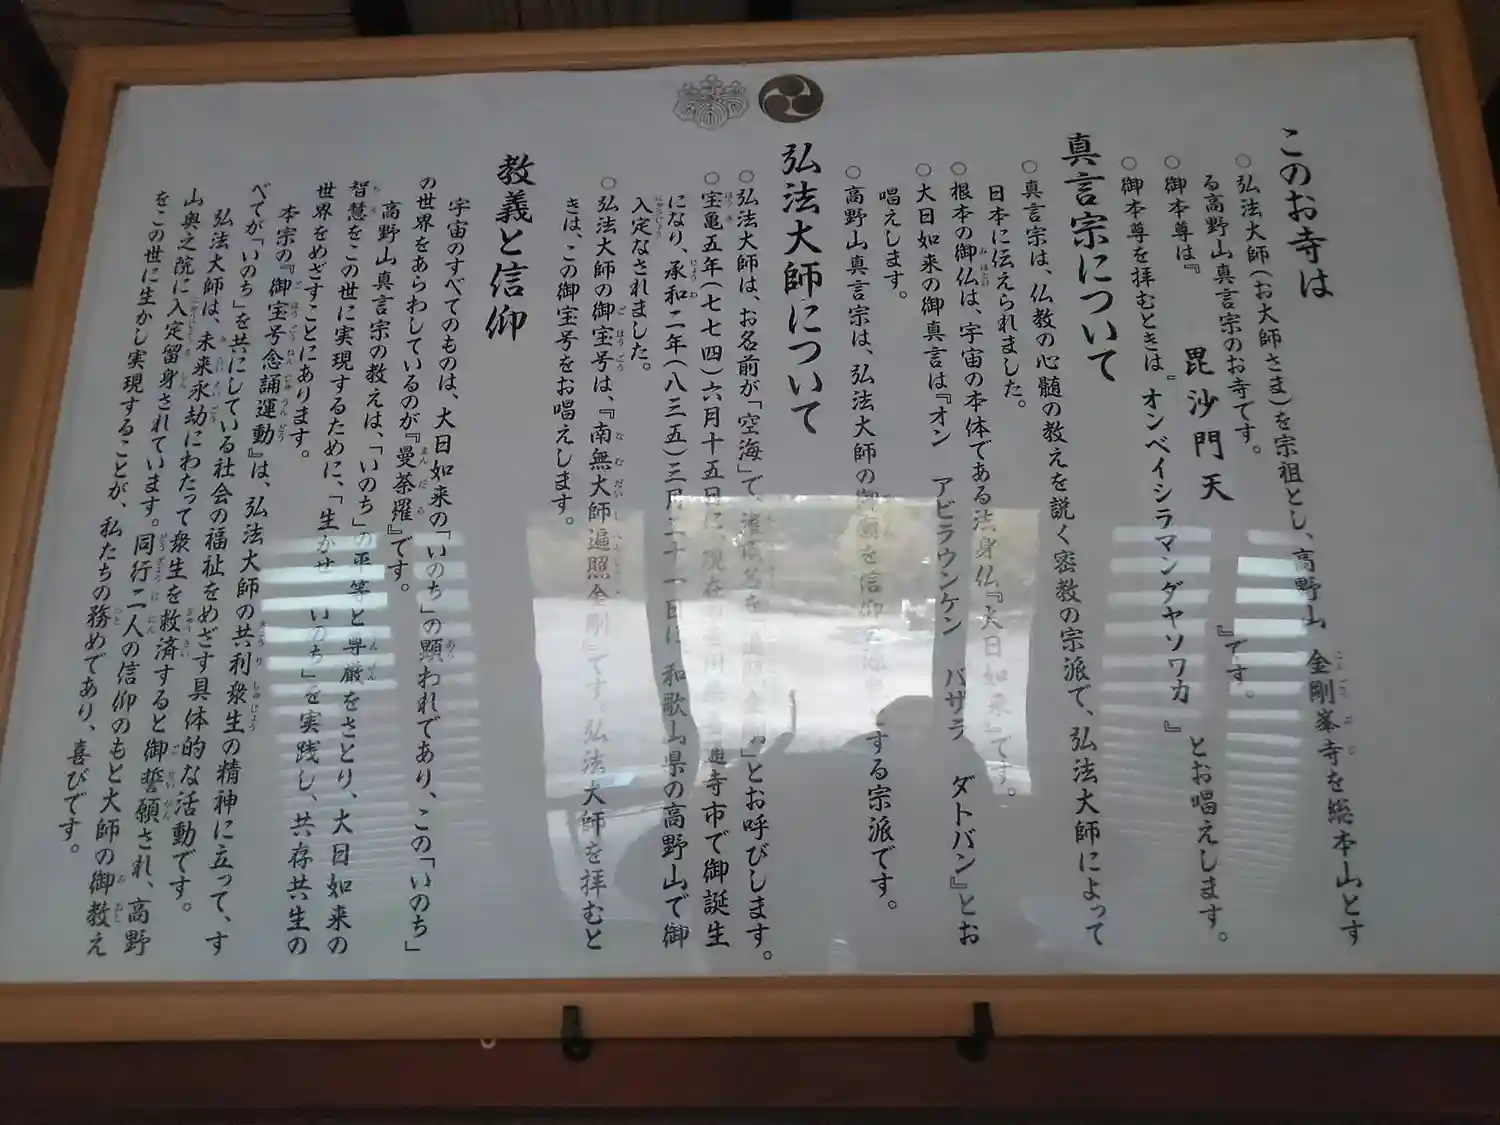 このお寺は
○弘法大師(お大師さま)を宗祖とし、高野山 金剛峯寺を総本山とす
る高野山真言宗のお寺です。
○御本尊は『 毘沙門天 』です。
○御本尊を拝むときは『オンベイシラマンダヤソワカ 』とお唱えします。
真言宗について
○真言宗は、仏教の心髄の教えを説く密教の宗派で、弘法大師によって
日本に伝えられました。
○根本の御仏は、宇宙の本体である法身仏『大日如来』です。
○大日如来の御真言は『オン アビラウンケン バザラ ダトバン』とお
唱えします。
○高野山真言宗は、弘法大師の御 を信仰の する宗派です。
弘法大師について
○弘法大師は、お名前が「空海」で、 」とお呼びします。
○宝亀五年(七七四)六月十五日に、現在の 通寺市で御誕生
になり、承和二年(八三五)三月二十一日に 和歌山県の高野山で御
入定なされました。
○弘法大師の御宝号は、『南無大師遍照金剛』です。弘法大師を拝むと
きは、この御宝号をお唱えします。
教義と信仰
宇宙のすべてのものは、大日如来の「いのち」の顕われであり、この「いのち」
の世界をあらわしているのが『曼荼羅』です。
高野山真言宗の教えは、「いのち」の平等と尊厳をさとり、大日如来の
智慧をこの世に実現するために、「生かせ いのち」を実践し、共存共生の
世界をめざすことにあります。
本宗の『御宝号念誦運動』は、弘法大師の共利衆生の精神に立って、す
べてが「いのち」を共にしている社会の福祉をめざす具体的な活動です。
弘法大師は、未来永劫にわたって衆生を救済すると御誓願され、高野
山奥之院に入定留身されています。同行二人の信仰のもと大師の御教え
をこの世に生かし実現することが、私たちの務めであり、喜びです。